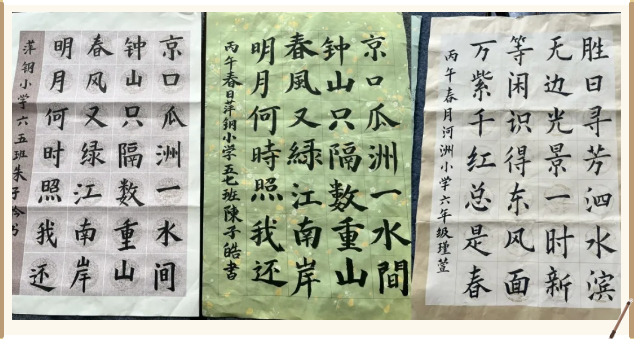 京口瓜洲一水间
钟山只隔数重山
春风又绿江南岸
明月何时照我还
萍钢小学六五班朱子今书
京口瓜洲一水間
钟山只隔数重山
春風又緑江南岸
明月何時照我还
丙午春日萍钢小学五七班陳子皓書
胜日寻芳泗水滨
无边光景一时新
等闲识得东风面
万紫千红总是春
丙午春月河洲小学六年级瑾萱